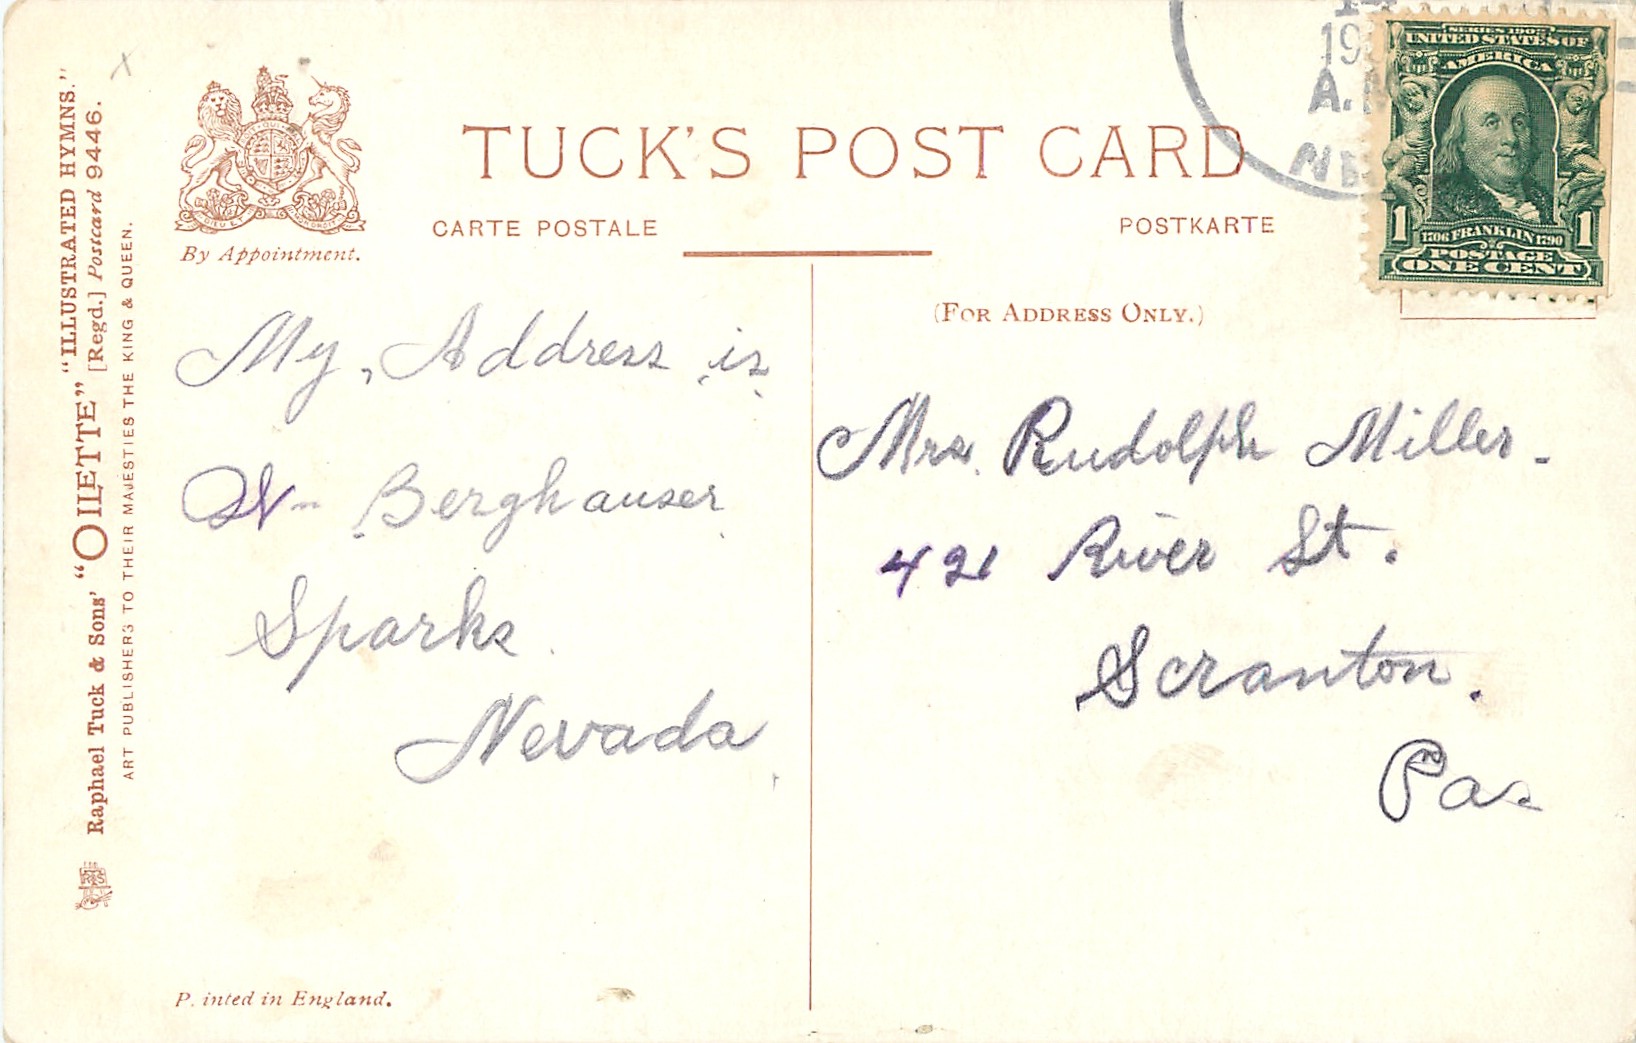 "ILLUSTRATED HYMNS."
Raphael Tuck & Sons' "OILETTE" [Regd.] Postcard 9446.
ART PUBLISHERS TO THEIR MAJESTIES THE KING & QUEEN.
By Appointment.
TUCK'S POST CARD
CARTE POSTALE
POSTKARTE
(FOR ADDRESS ONLY.)
19
A.
SERIES 1902
UNITED STATES OF
AMERICA
1 1
1706 FRANKLIN 1790
POSTAGE
ONE CENT
My Address is
Berghauser
Sparks.
Nevada
Mrs. Rudolph Miller.
421 River St.
Scranton.
Pa.
P. inted in England.